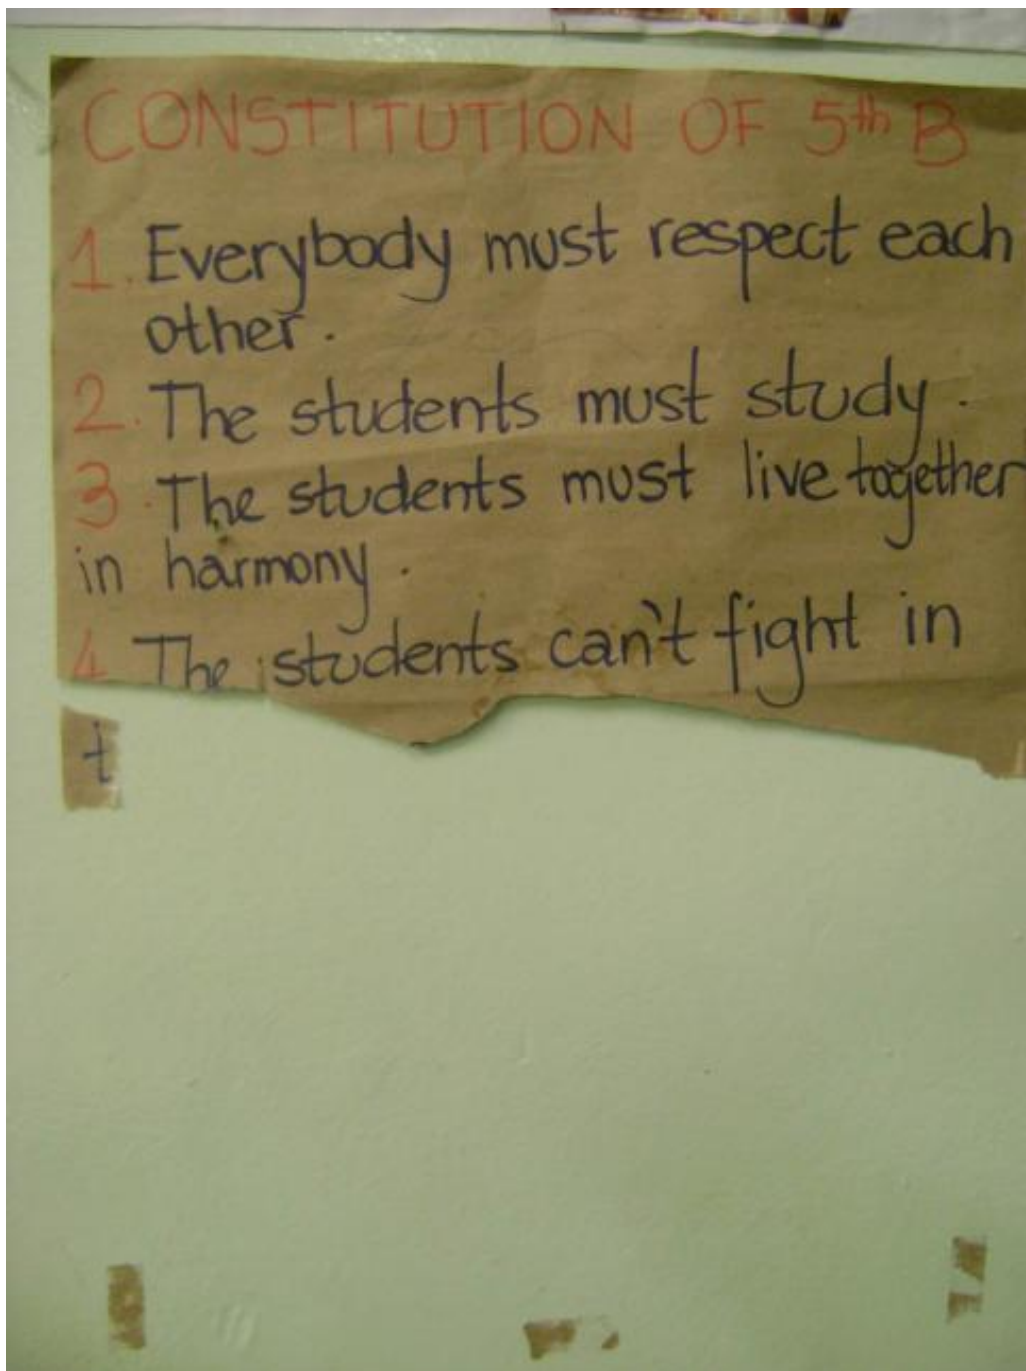 CONSTITUTION OF 5th B
1. Everybody must respect each
other.
2. The students must study.
3. The students must live together
in harmony.
4 The students can't fight in
t